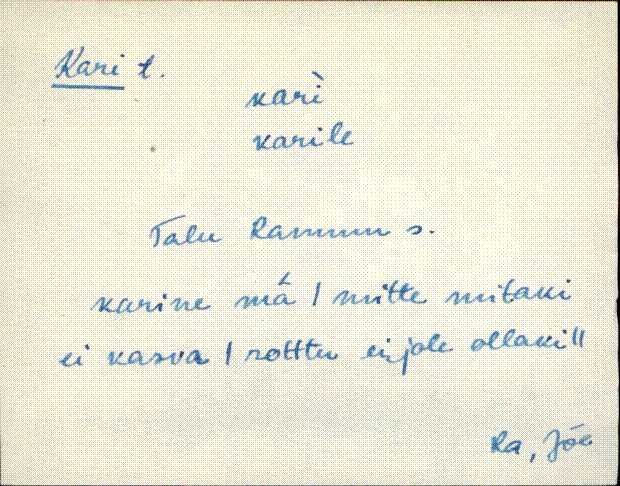 Kari t.
karì
karile
Talu Rammu s.
karine mā́ / mitte mitaki
ei kasva / rottu eijole ollaki\\
Ra, Jõe